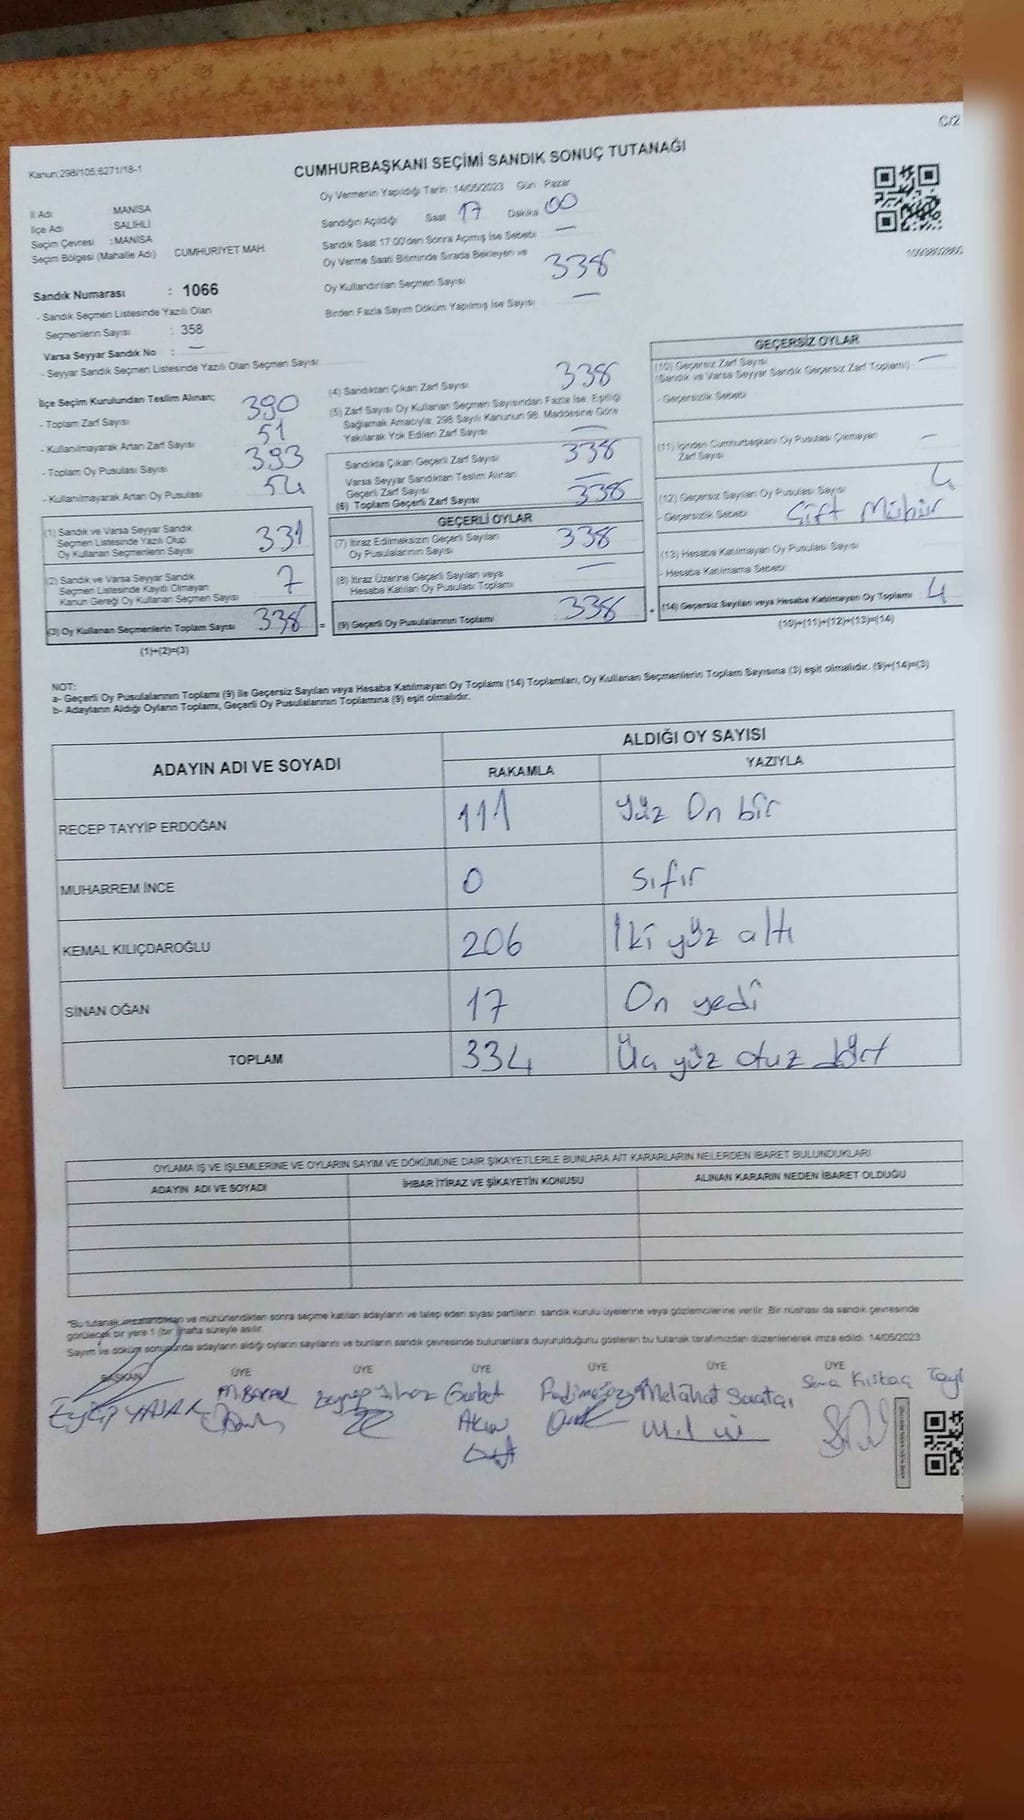 C/2
Kanun:298/105;6271/18-1
CUMHURBAŞKANI SEÇİMİ SANDIK SONUÇ TUTANAĞI
Oy Vermenin Yapıldığı Tarih : 14/05/2023 Gün : Pazar
İl Adı MANİSA
İlçe Adı SALİHLİ
Seçim Çevresi : MANİSA
Seçim Bölgesi (Mahalle Adı) CUMHURİYET MAH.
Sandığın Açıldığı Saat 17 Dakika 00
Sandık Saat 17.00'den Sonra Açılmış İse Sebebi —
Oy Verme Saati Bitiminde Sırada Bekleyen ve
Oy Kullandırılan Seçmen Sayısı 338
Birden Fazla Sayım Döküm Yapılmış İse Sayısı —
Sandık Numarası : 1066
- Sandık Seçmen Listesinde Yazılı Olan
Seçmenlerin Sayısı : 358
Varsa Seyyar Sandık No : —
- Seyyar Sandık Seçmen Listesinde Yazılı Olan Seçmen Sayısı:
İlçe Seçim Kurulundan Teslim Alınan;
- Toplam Zarf Sayısı 390
- Kullanılmayarak Artan Zarf Sayısı 51
- Toplam Oy Pusulası Sayısı 393
- Kullanılmayarak Artan Oy Pusulası 54
(1) Sandık ve Varsa Seyyar Sandık
Seçmen Listesinde Yazılı Olup
Oy Kullanan Seçmenlerin Sayısı 331
(2) Sandık ve Varsa Seyyar Sandık
Seçmen Listesinde Kayıtlı Olmayan
Kanun Gereği Oy Kullanan Seçmen Sayısı 7
(3) Oy Kullanan Seçmenlerin Toplam Sayısı 338 =
(1)+(2)=(3)
(4) Sandıktan Çıkan Zarf Sayısı 338
(5) Zarf Sayısı Oy Kullanan Seçmen Sayısından Fazla İse, Eşitliği
Sağlamak Amacıyla; 298 Sayılı Kanunun 98. Maddesine Göre
Yakılarak Yok Edilen Zarf Sayısı —
Sandıkta Çıkan Geçerli Zarf Sayısı 338
Varsa Seyyar Sandıktan Teslim Alınan
Geçerli Zarf Sayısı —
(6) Toplam Geçerli Zarf Sayısı 338
GEÇERLİ OYLAR
(7) İtiraz Edilmeksizin Geçerli Sayılan
Oy Pusulalarının Sayısı 338
(8) İtiraz Üzerine Geçerli Sayılan veya
Hesaba Katılan Oy Pusulası Toplamı —
(9) Geçerli Oy Pusulalarının Toplamı 338 +
GEÇERSİZ OYLAR
(10) Geçersiz Zarf Sayısı —
(Sandık ve Varsa Seyyar Sandık Geçersiz Zarf Toplamı)
- Geçersizlik Sebebi
(11) İçinden Cumhurbaşkanı Oy Pusulası Çıkmayan
Zarf Sayısı —
(12) Geçersiz Sayılan Oy Pusulası Sayısı 4
- Geçersizlik Sebebi Çift Mühür
(13) Hesaba Katılmayan Oy Pusulası Sayısı
- Hesaba Katılmama Sebebi
(14) Geçersiz Sayılan veya Hesaba Katılmayan Oy Toplamı 4
(10)+(11)+(12)+(13)=(14)
NOT:
a- Geçerli Oy Pusulalarının Toplamı (9) ile Geçersiz Sayılan veya Hesaba Katılmayan Oy Toplamı (14) Toplamları, Oy Kullanan Seçmenlerin Toplam Sayısına (3) eşit olmalıdır. (9)+(14)=(3)
b- Adayların Aldığı Oyların Toplamı, Geçerli Oy Pusulalarının Toplamına (9) eşit olmalıdır.
ADAYIN ADI VE SOYADI ALDIĞI OY SAYISI
RAKAMLA YAZIYLA
RECEP TAYYİP ERDOĞAN 111 Yüz On bir
MUHARREM İNCE 0 Sıfır
KEMAL KILIÇDAROĞLU 206 İki yüz altı
SİNAN OĞAN 17 On yedi
TOPLAM 334 Üç yüz otuz dört
OYLAMA İŞ VE İŞLEMLERİNE VE OYLARIN SAYIM VE DÖKÜMÜNE DAİR ŞİKAYETLERLE BUNLARA AİT KARARLARIN NELERDEN İBARET BULUNDUKLARI
ADAYIN ADI VE SOYADI İHBAR İTİRAZ VE ŞİKAYETİN KONUSU ALINAN KARARIN NEDEN İBARET OLDUĞU
"Bu tutanak imzalandıktan ve mühürlendikten sonra seçime katılan adayların ve talep eden siyasi partilerin sandık kurulu üyelerine veya gözlemcilerine verilir. Bir nüshası da sandık çevresinde
görülecek bir yere 1 (bir) hafta süreyle asılır.
Sayım ve döküm sonucunda adayların aldığı oyların sayılarını ve bunların sandık çevresinde bulunanlara duyurulduğunu gösteren bu tutanak tarafımızdan düzenlenerek imza edildi. 14/05/2023
BAŞKAN ÜYE ÜYE ÜYE ÜYE ÜYE ÜYE
Eyüp YAŞAR Zeynep Yılmaz Gurbet Melahat Saatçi Sema Kıskaç
Akın